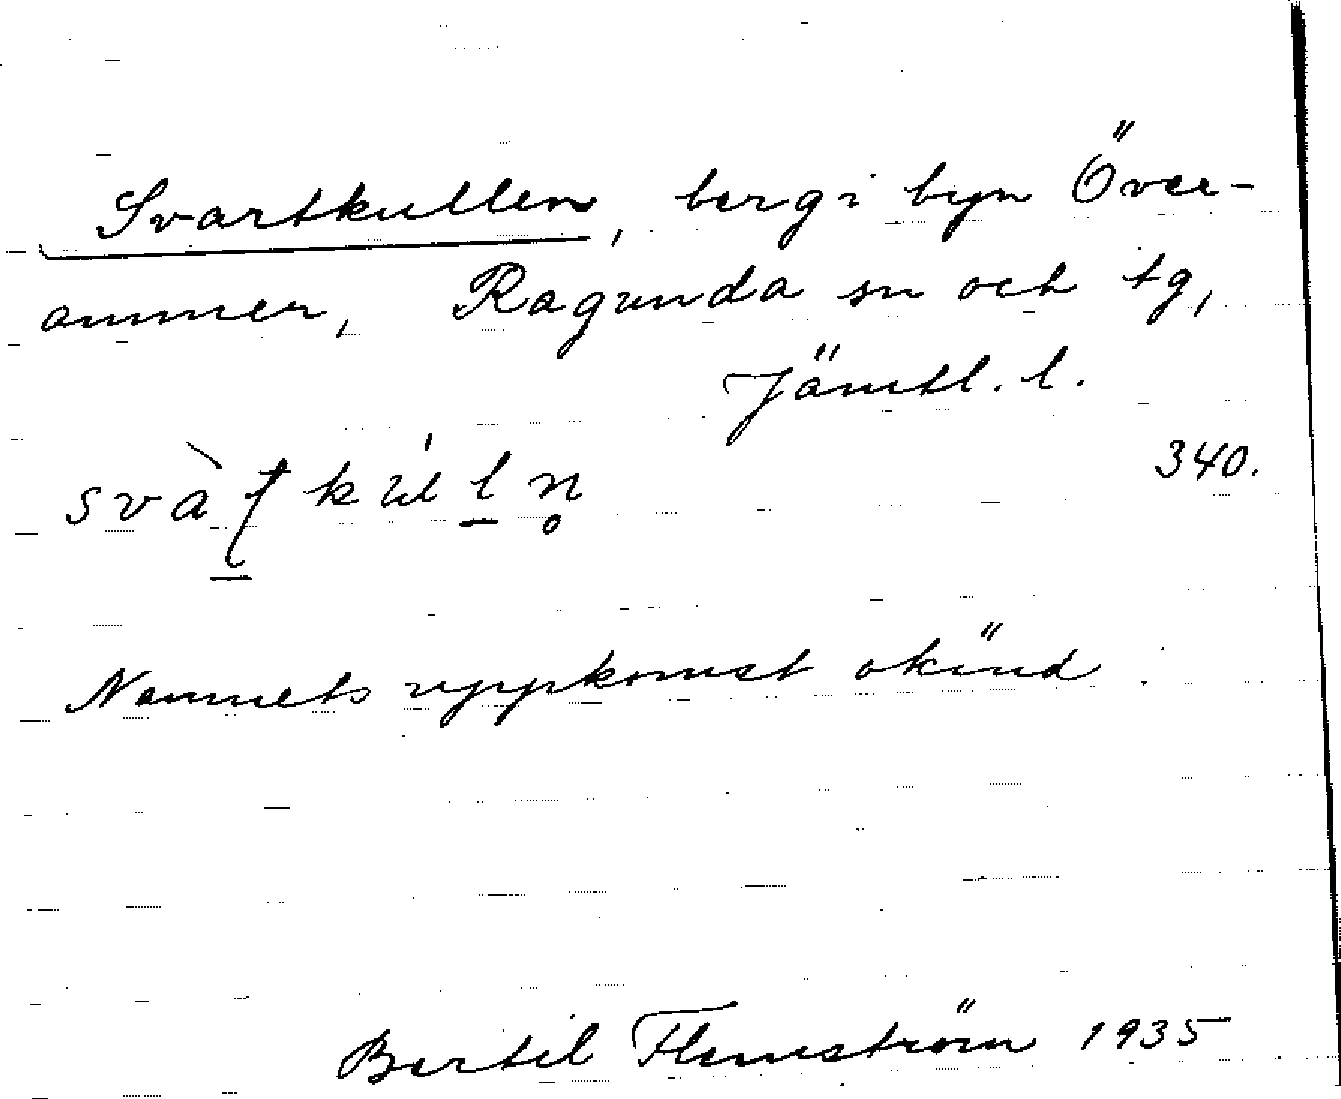 Svartkullen, berg i byn Över-
ammer, Ragunda sn och tg,
Jämtl. l.
340.
Namnets uppkomst okänd.
Bertil Flemström 1935